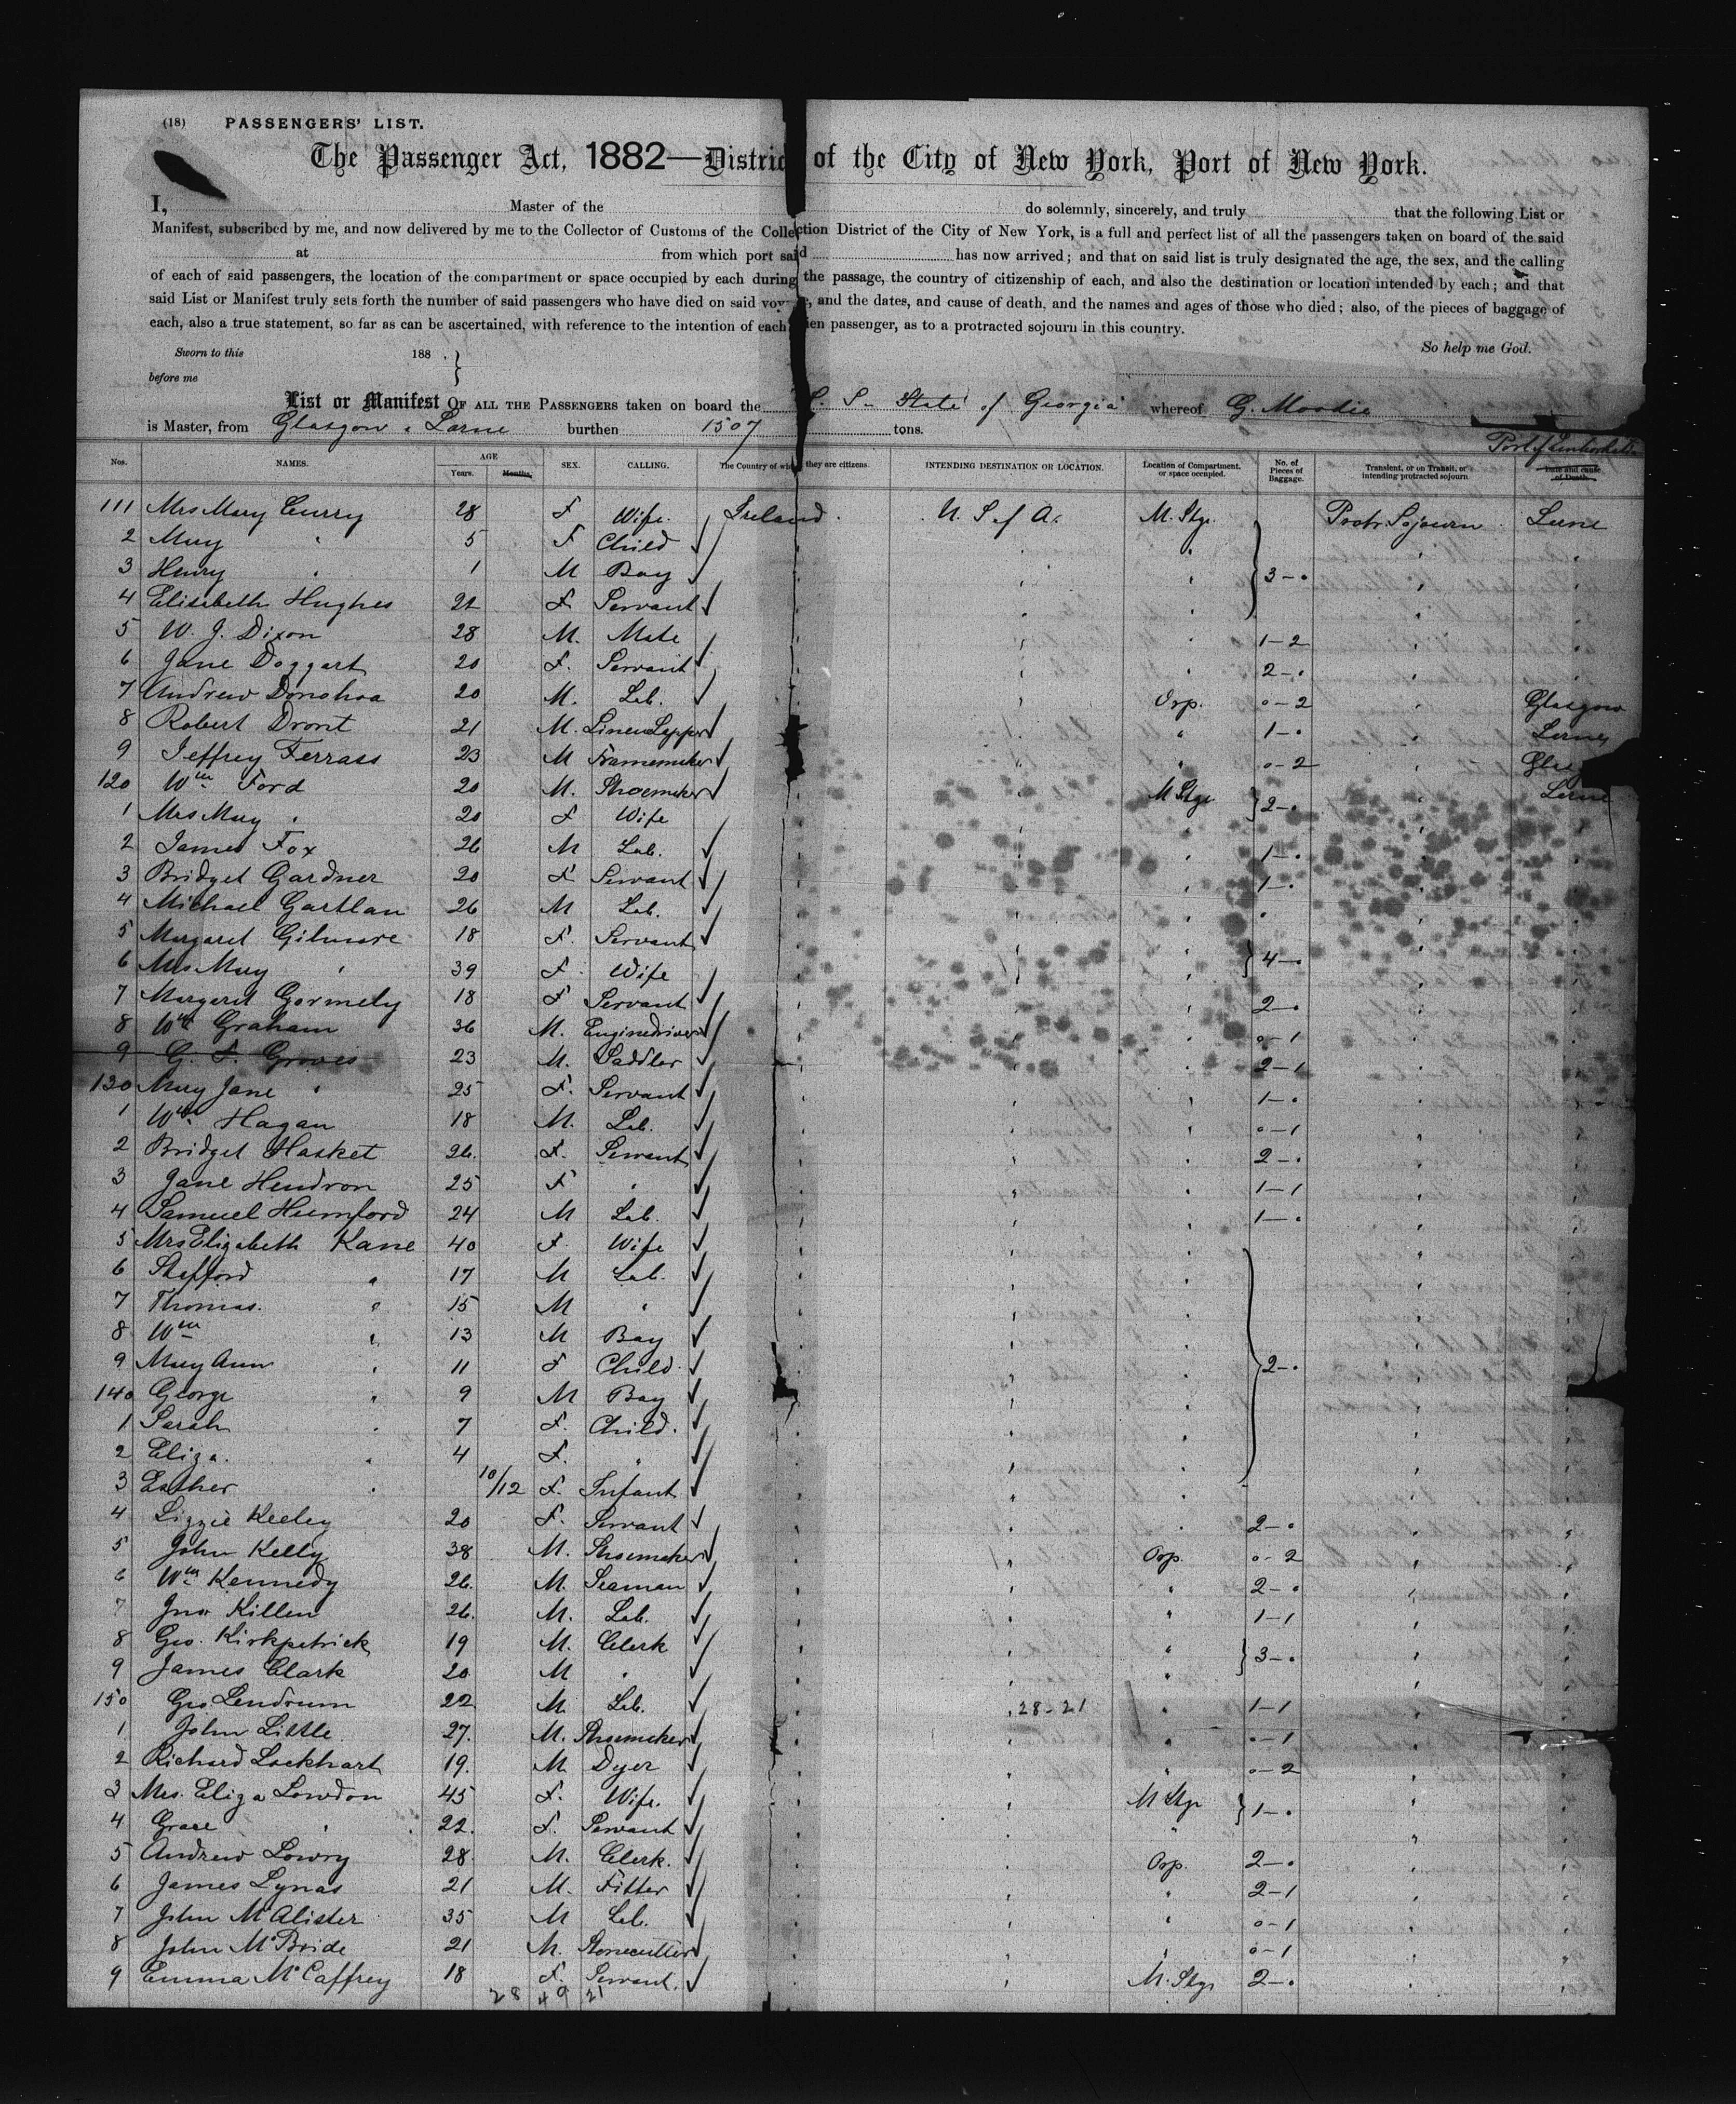 (18) PASSENGERS' LIST.
The Passenger Act, 1882—District of the City of New York, Port of New York.
I, Master of the do solemnly, sincerely, and truly that the following List or
Manifest, subscribed by me, and now delivered by me to the Collector of Customs of the Collection District of the City of New York, is a full and perfect list of all the passengers taken on board of the said
at from which port said has now arrived; and that on said list is truly designated the age, the sex, and the calling
of each of said passengers, the location of the compartment or space occupied by each during the passage, the country of citizenship of each, and also the destination or location intended by each; and that
said List or Manifest truly sets forth the number of said passengers who have died on said voyage, and the dates, and cause of death, and the names and ages of those who died; also, of the pieces of baggage of
each, also a true statement, so far as can be ascertained, with reference to the intention of each alien passenger, as to a protracted sojourn in this country.
So help me God.
Sworn to this 188 .
before me
List or Manifest OF ALL THE PASSENGERS taken on board the S. S. State of Georgia whereof G. Moodie
is Master, from Glasgow & Larne burthen 1507 tons.
Nos. NAMES. AGE Years. Months. SEX. CALLING. The Country of which they are citizens. INTENDING DESTINATION OR LOCATION. Location of Compartment, or space occupied. No. of Pieces of Baggage. Transient, or on Transit, or intending protracted sojourn Date and cause of Death. Port of
111 Mrs Mary Curry 28 F Wife. Ireland. U. S. of A. M. Stge. Protr. Sojourn Larne
2 Mary " 5 F Child " "
3 Henry " 1 M Boy " " 3-0 "
4 Elizabeth Hughes 22 F Servant " " "
5 W. J. Dixon 28 M. Mate " " 1-2 "
6 Jane Doggart 20 F. Servant " " 2-0 "
7 Andrew Donohoa 20 M. Lab. " Orp. 0-2 " Glasgow
8 Robert Dront 21 M. Linen Lapper " " 1-0 " Larne
9 Jeffrey Ferrass 23 M Framemaker " " 0-2 "
120 Wm Ford 20 M. Shoemaker " M Stge 2-0 " Larne
1 Mrs Mary " 20 F Wife " " "
2 James Fox 26 M Lab. " " 1-0 "
3 Bridget Gardner 20 F Servant " " 1-0 "
4 Michael Gartlan 26 M Lab. " " "
5 Margaret Gilmore 18 F. Servant " " "
6 Mrs Mary " 39 F. Wife " " 4-0 "
7 Margaret Gormely 18 F Servant " " 2-0 "
8 Wm Graham 36 M. Enginedriver " " 0-1 "
9 G. F. Groves 23 M. Saddler " " 2-1 "
130 Mary Jane " 25 F. Servant " " 1-0 "
1 Wm Hagan 18 M. Lab. " " 0-1 "
2 Bridget Hasket 26. F. Servant " " 2-0 "
3 Jane Hendron 25 F " " " 1-1 "
4 Samuel Humford 24 M Lab. " " 1-0 "
5 Mrs Elizabeth Kane 40 F. Wife " " "
6 Stafford " 17 M Lab. " " "
7 Thomas. " 15 M " " " "
8 Wm " 13 M Boy " " "
9 Mary Ann " 11 F Child. " " 2-0 "
140 George " 9 M Boy " " "
1 Sarah " 7 F. Child. " " "
2 Eliza. " 4 F. " " " "
3 Esther " 10/12 F. Infant " " "
4 Lizzie Keeley 20 F. Servant " " 2-0 "
5 John Kelly 38 M. Shoemaker " Orp. 0-2 "
6 Wm Kennedy 26. M. Seaman " " 2-0 "
7 Jno. Killen 26. M. Lab. " " 1-1 "
8 Geo. Kirkpatrick 19 M. Clerk " " 3-0 "
9 James Clark 20 M " " " "
150 Geo Lendrum 22 M Lab. " 28-21 " 1-1 "
1 John Little 27. M. Shoemaker " " 0-1 "
2 Richard Lockhart 19. M Dyer " " 0-2 "
3 Mrs. Eliza Lowdon 45 F. Wife. " M Stge 1-0 "
4 Grace " 22. F. Servant " " "
5 Andrew Lowry 28 M. Clerk. " Orp. 2-0 "
6 James Lynas 21 M. Fitter " " 2-1 "
7 John McAlister 35 M Lab. " " 0-1 "
8 John McBride 21 M. Stonecutter " " 0-1 "
9 Emma McCaffrey 18 F. Servant. " M. Stge 2-0 "
28 49 21